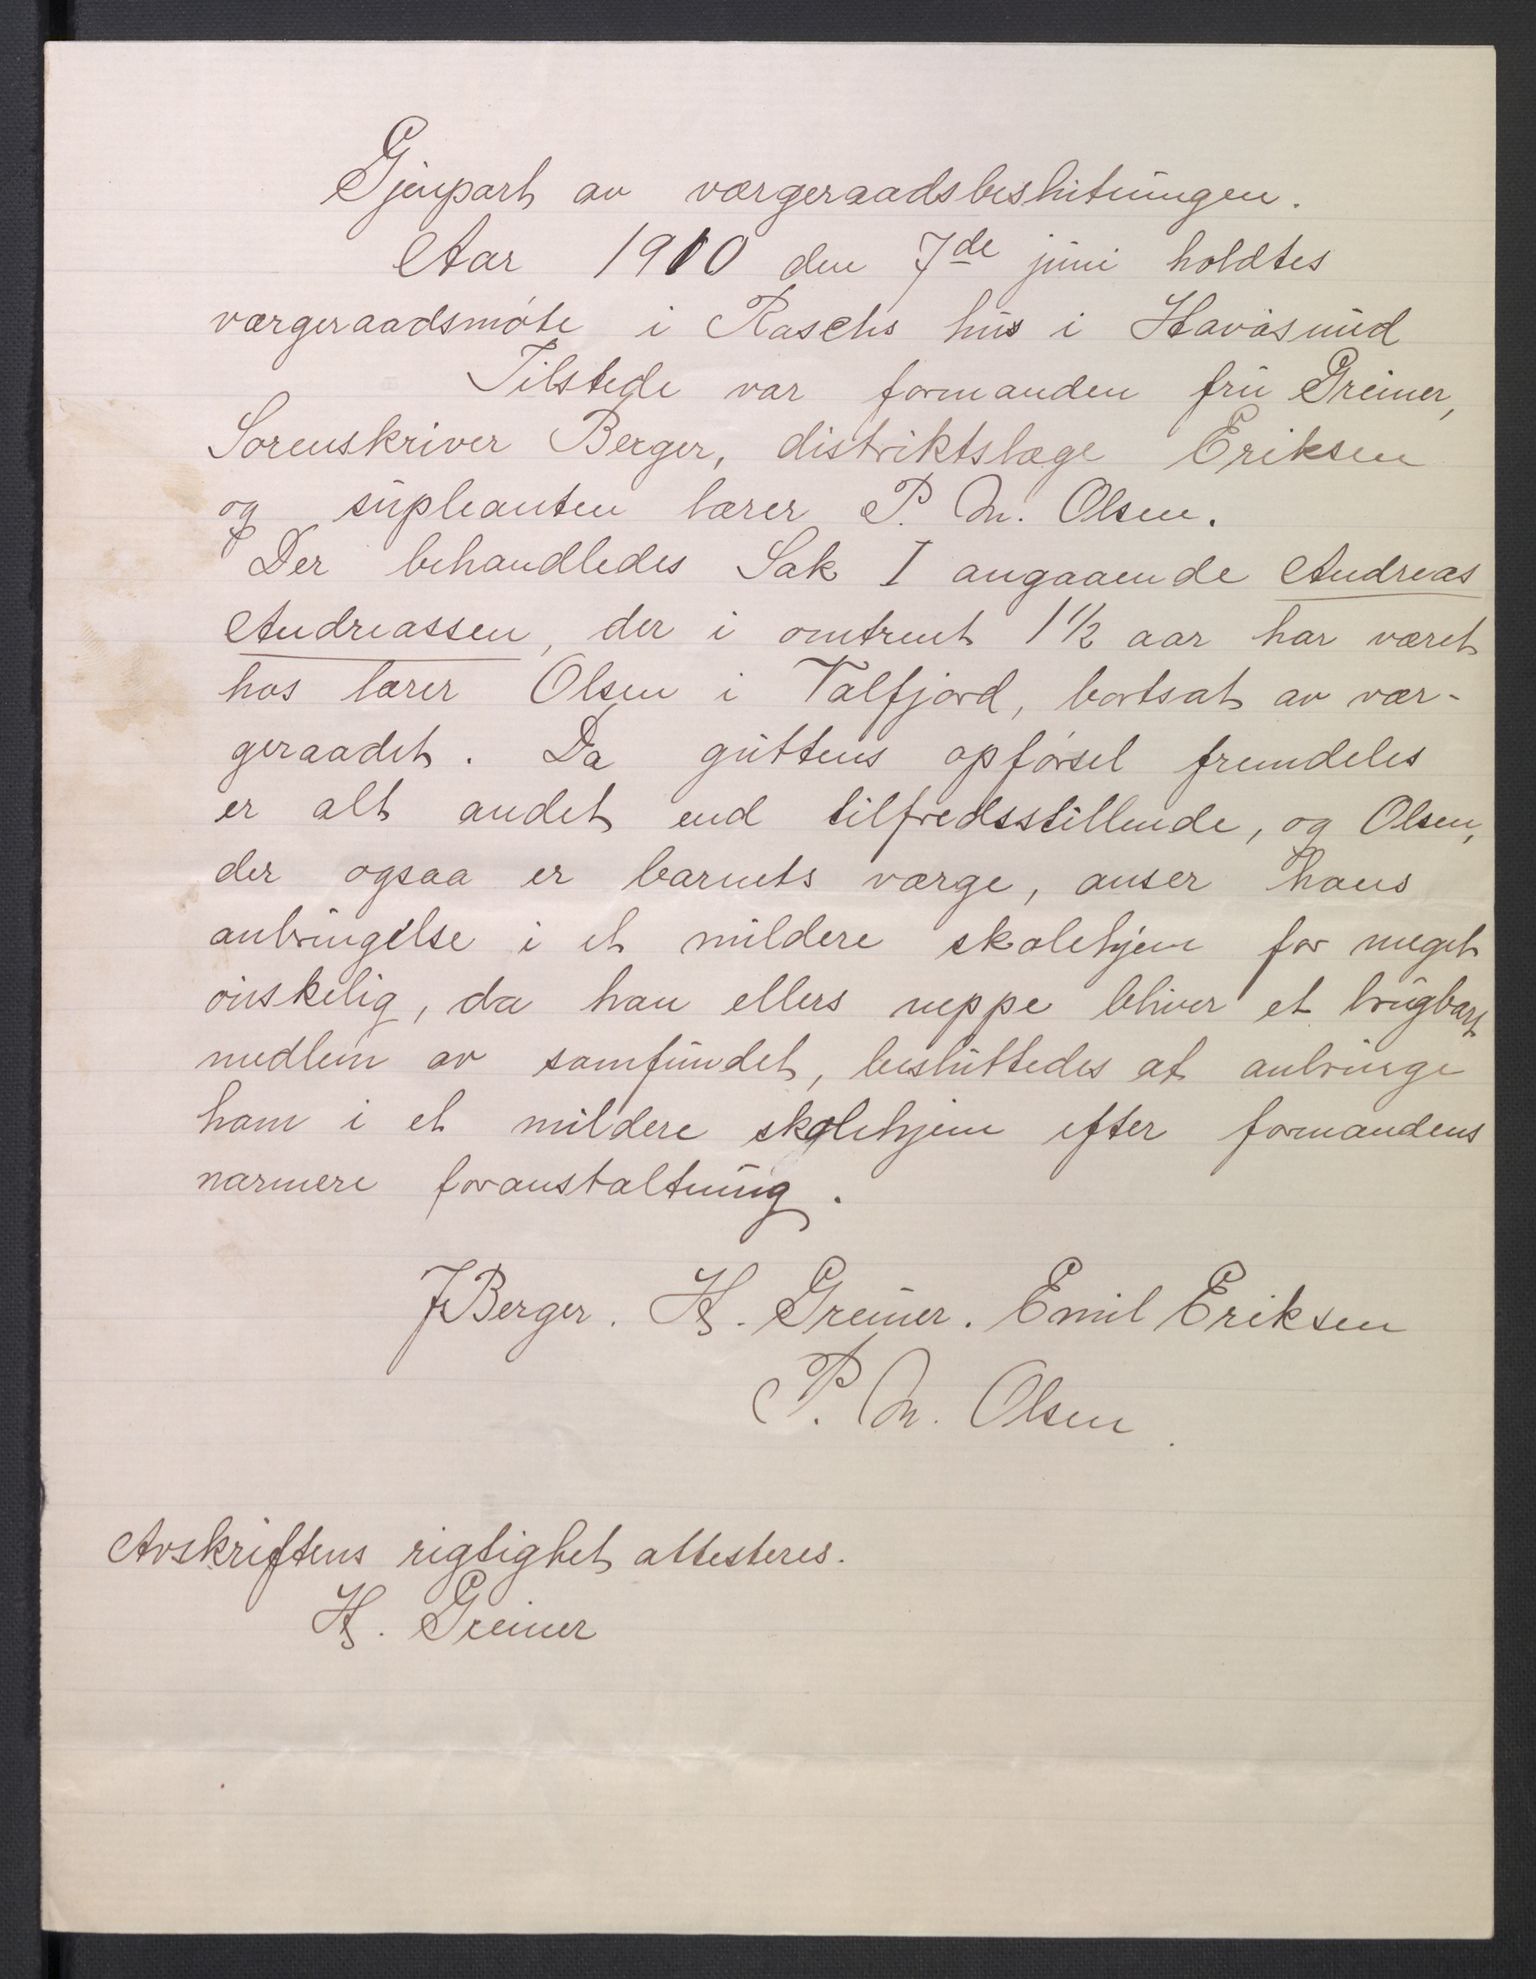 Gjenpart av værgeraadsbeslutningen.
Aar 1910 den 7de juni holdtes
værgeraadsmøte i Raschs hus i Havøsund
Tilstede var formanden fru Greiner,
Sorenskriver Berger, distriktslæge Eriksen
og supleanten lærer P. M. Olsen.
Der behandledes Sak I angaaende Andreas
Andreassen, der i omtrent 1 1/2 aar har været
hos lærer Olsen i Talfjord, bortsat av vær-
geraadet. Da guttens opførsel fremdeles
er alt andet end tilfredsstillende, og Olsen,
der ogsaa er barnets værge, anser hans
anbringelse i et mildere skolehjem for meget
ønskelig, da han ellers neppe bliver et brugbart
medlem av samfundet, besluttedes at anbringe
ham i et mildere skolehjem efter formandens
nærmere foranstaltning.
J Berger. H. Greiner. Emil Eriksen
P. M. Olsen
Avskriftens rigtighet attesteres.
H. Greiner